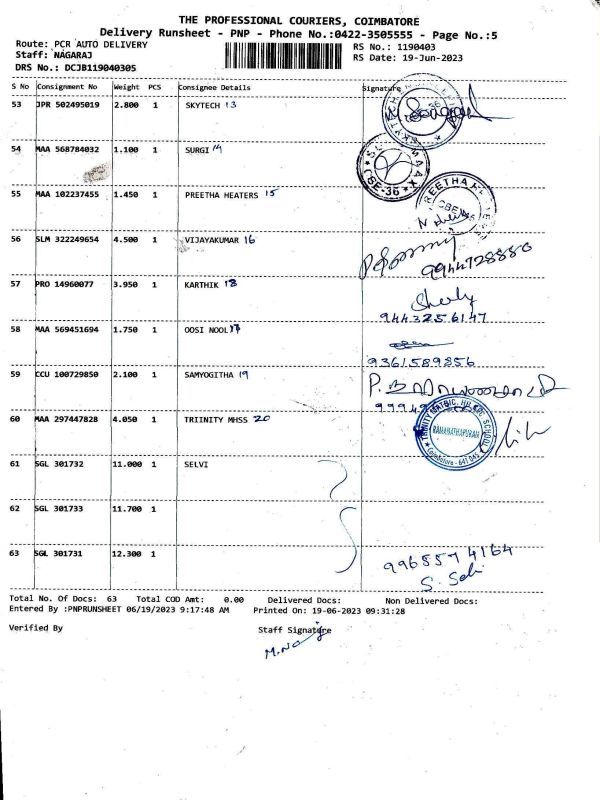 THE PROFESSIONAL COURIERS, COIMBATORE
Delivery Runsheet - PNP - Phone No.:0422-3505555 - Page No.:5
Route: PCR AUTO DELIVERY RS No.: 1190403
Staff: NAGARAJ RS Date: 19-Jun-2023
DRS No.: DCJB119040305
S No Consignment No Weight PCS Consignee Details Signature
53 JPR 502495019 2.800 1 SKYTECH 13
54 MAA 568784032 1.100 1 SURGI 14
CBE-36
55 MAA 102237455 1.450 1 PREETHA HEATERS 15
56 SLM 322249654 4.500 1 VIJAYAKUMAR 16
9944728880
57 PRO 14960077 3.950 1 KARTHIK 18
9443256147
58 MAA 569451694 1.750 1 OOSI NOOL 17
9361589856
59 CCU 100729850 2.100 1 SAMYOGITHA 19
60 MAA 297447828 4.050 1 TRIINITY MHSS 20
TRINITY MATRIC. HR. SEC. SCHOOL
RAMANATHAPURAM
Coimbatore - 641 045
61 SGL 301732 11.000 1 SELVI
62 SGL 301733 11.700 1
63 SGL 301731 12.300 1
9965574164
S. Selvi
Total No. Of Docs: 63 Total COD Amt: 0.00 Delivered Docs: Non Delivered Docs:
Entered By :PNPRUNSHEET 06/19/2023 9:17:48 AM Printed On: 19-06-2023 09:31:28
Verified By Staff Signature